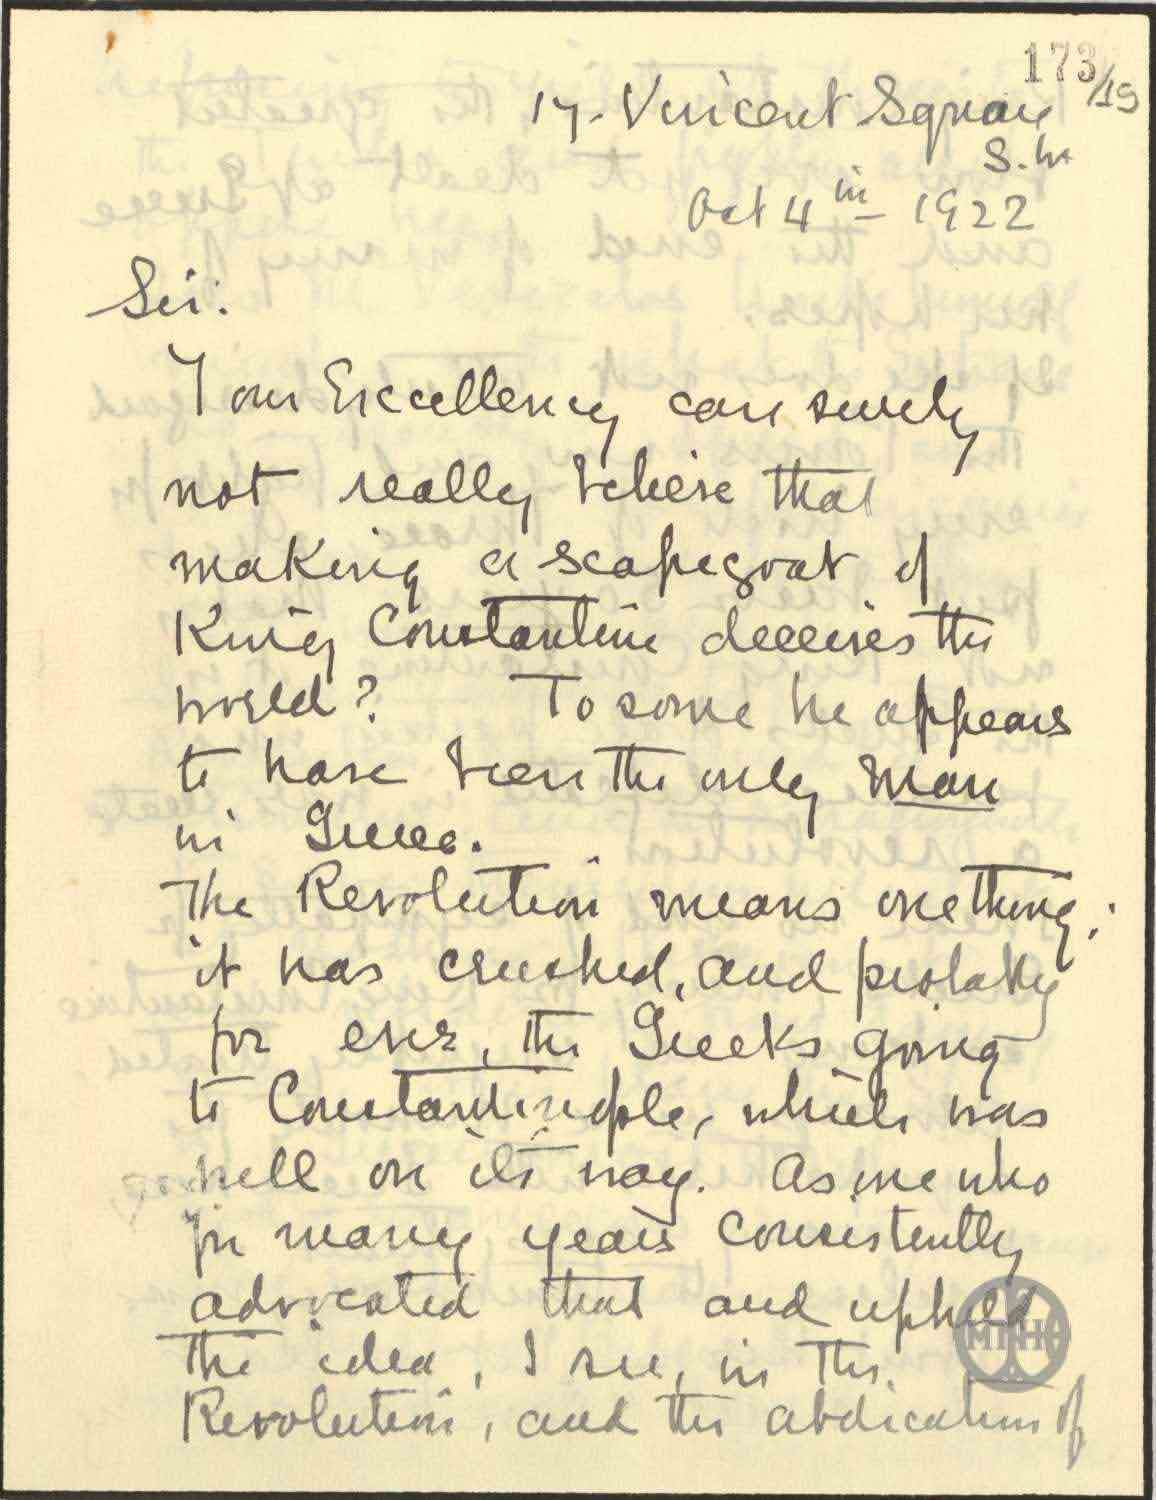 173/19
17. Vincent Square
S.W
Oct 4th 1922
Sir:
Your Excellency can surely
not really believe that
making a scapegoat of
King Constantine deceives the
world? To some he appears
to have been the only man
in Greece.
The Revolution means one thing:
it has crushed, and probably
for ever, the Greeks going
to Constantinople, which was
well on its way. As one who
for many years consistently
advocated that and upheld
the idea, I see, in the
Revolution, and the abdication of